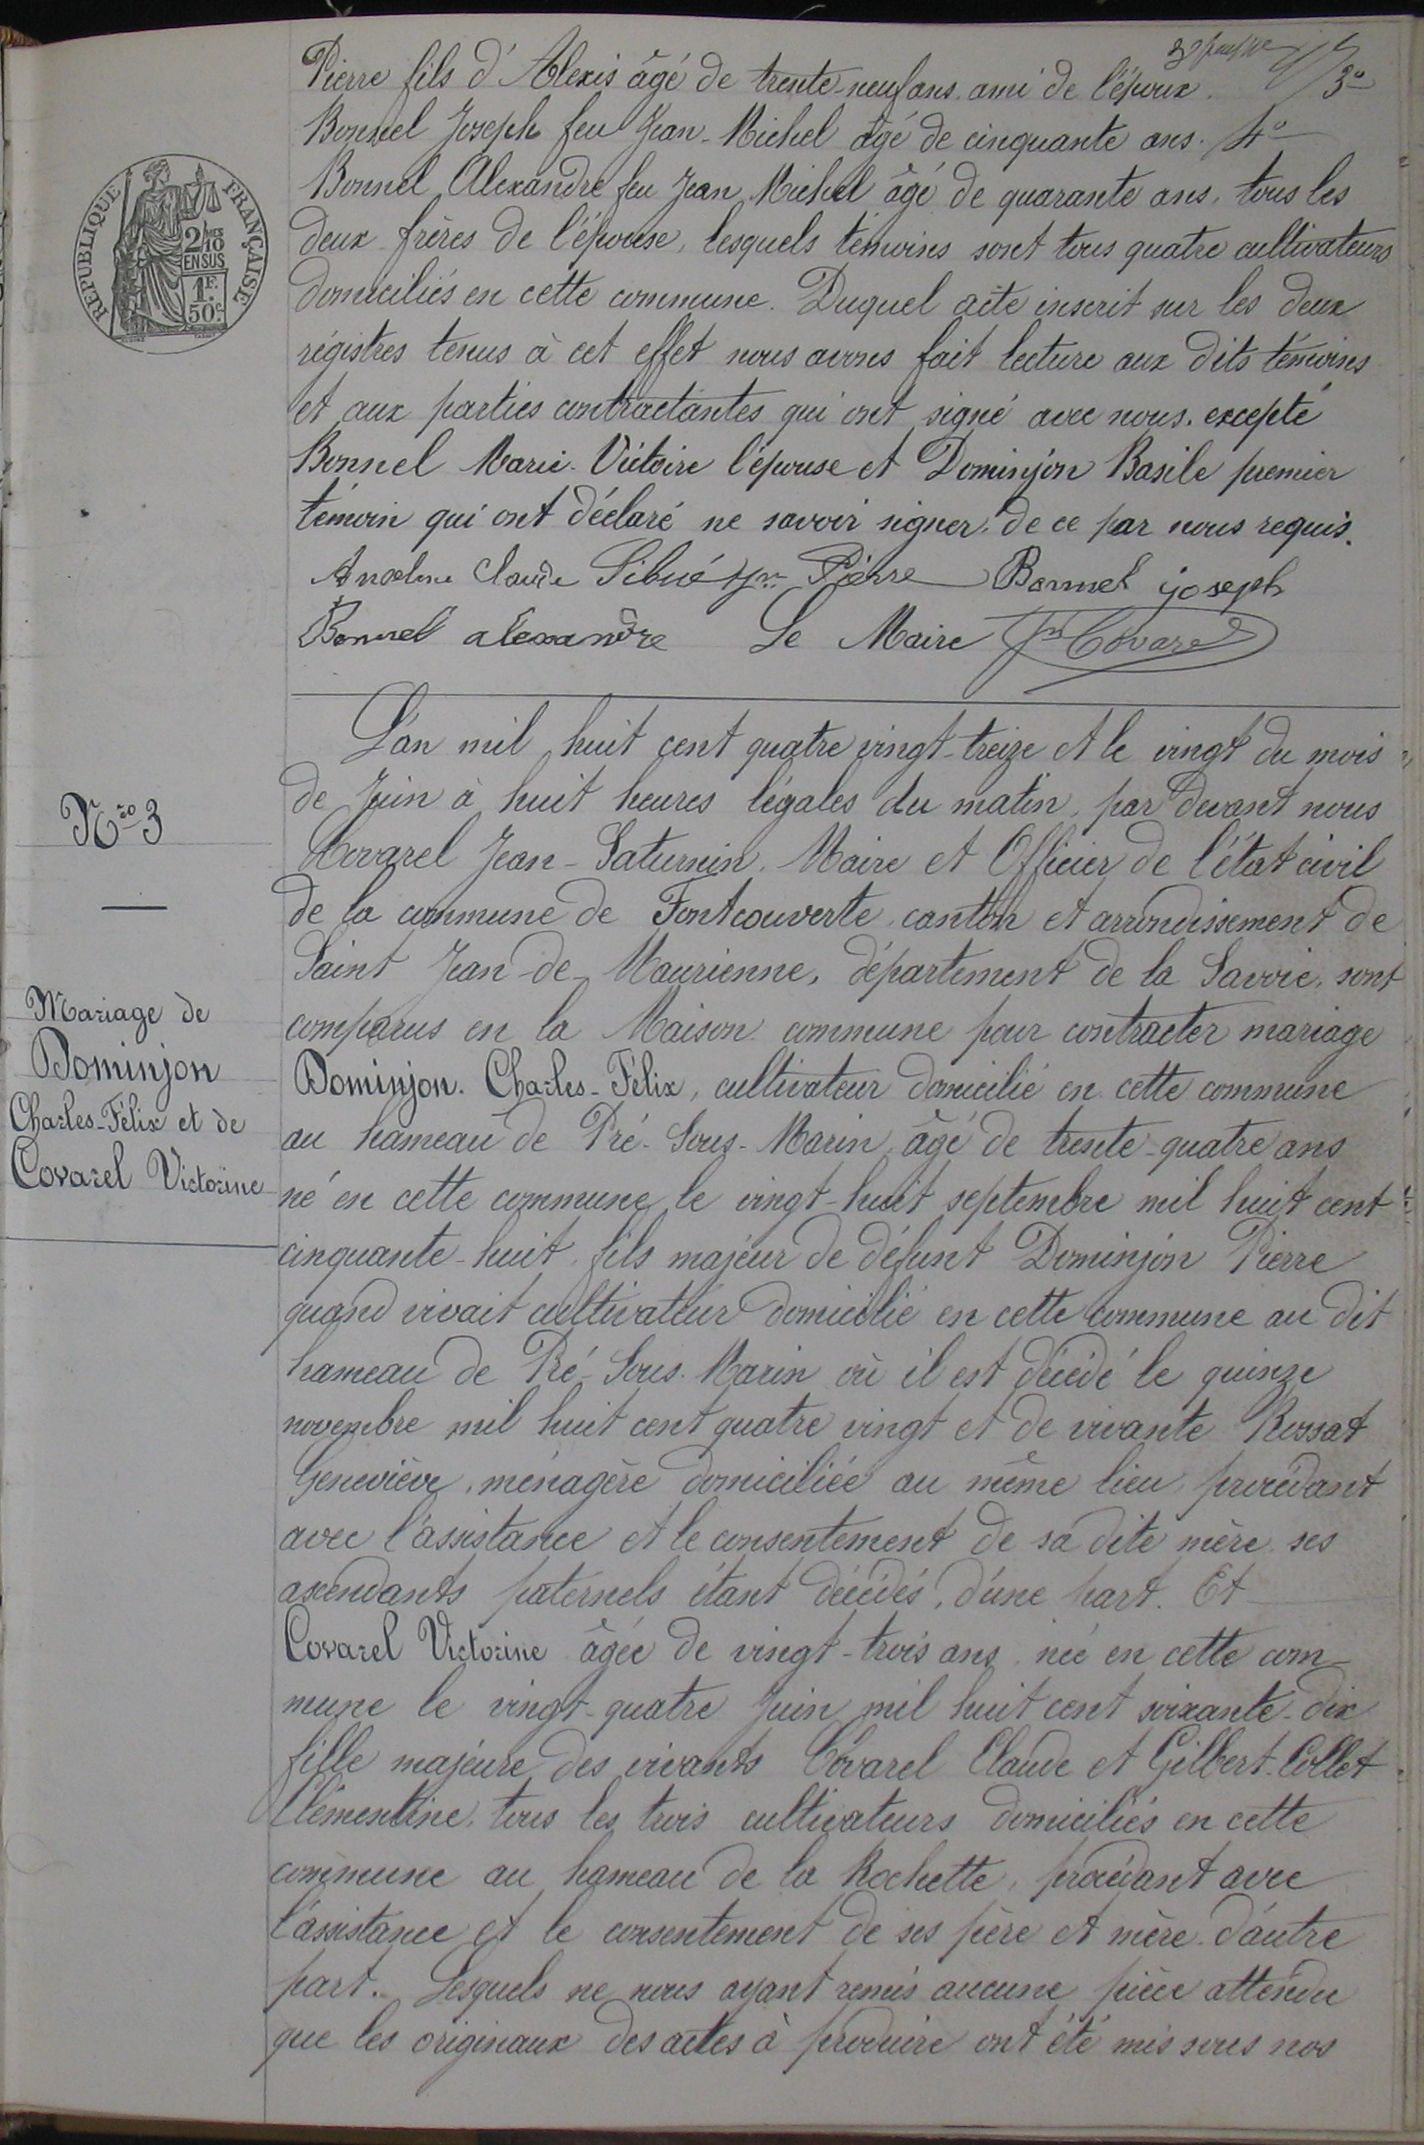 Pierre fils d'Alexis âgé de trente-neuf ans ami de l'époux. 3°
Bonnel Joseph feu Jean-Michel âgé de cinquante ans. 4°
Bonnel Alexandre feu Jean Michel âgé de quarante ans, tous les
deux frères de l'épouse, lesquels témoins sont tous quatre cultivateurs
domiciliés en cette commune. Duquel acte inscrit sur les deux
régistres tenus à cet effet nous avons fait lecture aux dits témoins
et aux parties contractantes qui ont signé avec nous. excepté
Bonnel Marie-Victoire l'épouse et Dominjon Basile premier
témoin qui ont déclaré ne savoir signer, de ce par nous requis.
Anselme Claude Sibué Pierre Bonnel joseph
Bonnel alexandre Le Maire Covarel
REPUBLIQUE FRANÇAISE
2/10 EN SUS
1F. 50c
L'an mil huit cent quatre vingt-treize et le vingt du mois
de Juin à huit heures légales du matin, par devant nous
Covarel Jean-Saturnin, Maire et Officier de l'état civil
de la commune de Fontcouverte, canton et arrondissement de
Saint Jean de Maurienne, département de la Savoie, sont
comparus en la Maison commune pour contracter mariage
Dominjon Charles-Félix, cultivateur domicilié en cette commune
au hameau de Pré-Sous-Marin, âgé de trente-quatre ans
né en cette commune le vingt-huit septembre mil huit cent
cinquante-huit, fils majeur de défunt Dominjon Pierre
quand vivait cultivateur domicilié en cette commune au dit
hameau de Pré-Sous-Marin où il est décédé le quinze
novembre mil huit cent quatre vingt et de vivante Rossat
Geneviève, ménagère domiciliée au même lieu, procédant
avec l'assistance et le consentement de sa dite mère ses
ascendants paternels étant décédés, d'une part. Et
Covarel Victorine âgée de vingt-trois ans, née en cette com-
mune le vingt-quatre Juin mil huit cent soixante-dix
fille majeure des vivants Covarel Claude et Gilbert-Collet
Clémentine, tous les trois cultivateurs domiciliés en cette
commune au hameau de la Rochette, procédant avec
l'assistance et le consentement de ses père et mère d'autre
part. Lesquels ne nous ayant remis aucune pièce attendu
que les originaux des actes à produire ont été mis sous nos
Nro 3
Mariage de
Dominjon
Charles-Félix et de
Covarel Victorine